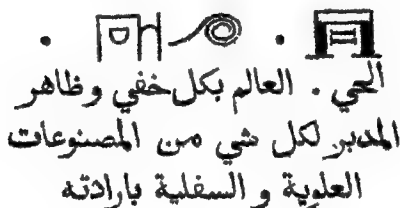 الحي . العالم بكل خفي وظاهر
المدبر لكل شي من المصنوعات
العلوية و السفلية بارادته